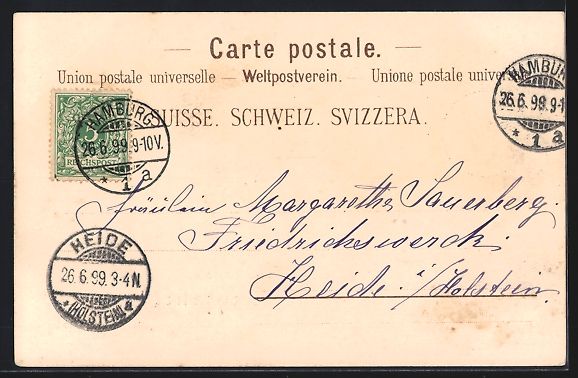 Carte postale.
Union postale universelle — Weltpostverein. — Unione postale univer
UISSE. SCHWEIZ. SVIZZERA.
3
REICHSPOST
HAMBURG
26.6.99.9-10V.
* 1 a
HAMBUR
26.6.99.9-1
* 1 a
Fräulein Margaretha Sauerberg.
Friedrichswerk
Heide i/Holstein.
HEIDE
26.6.99.3-4N.
* (HOLSTEIN) a